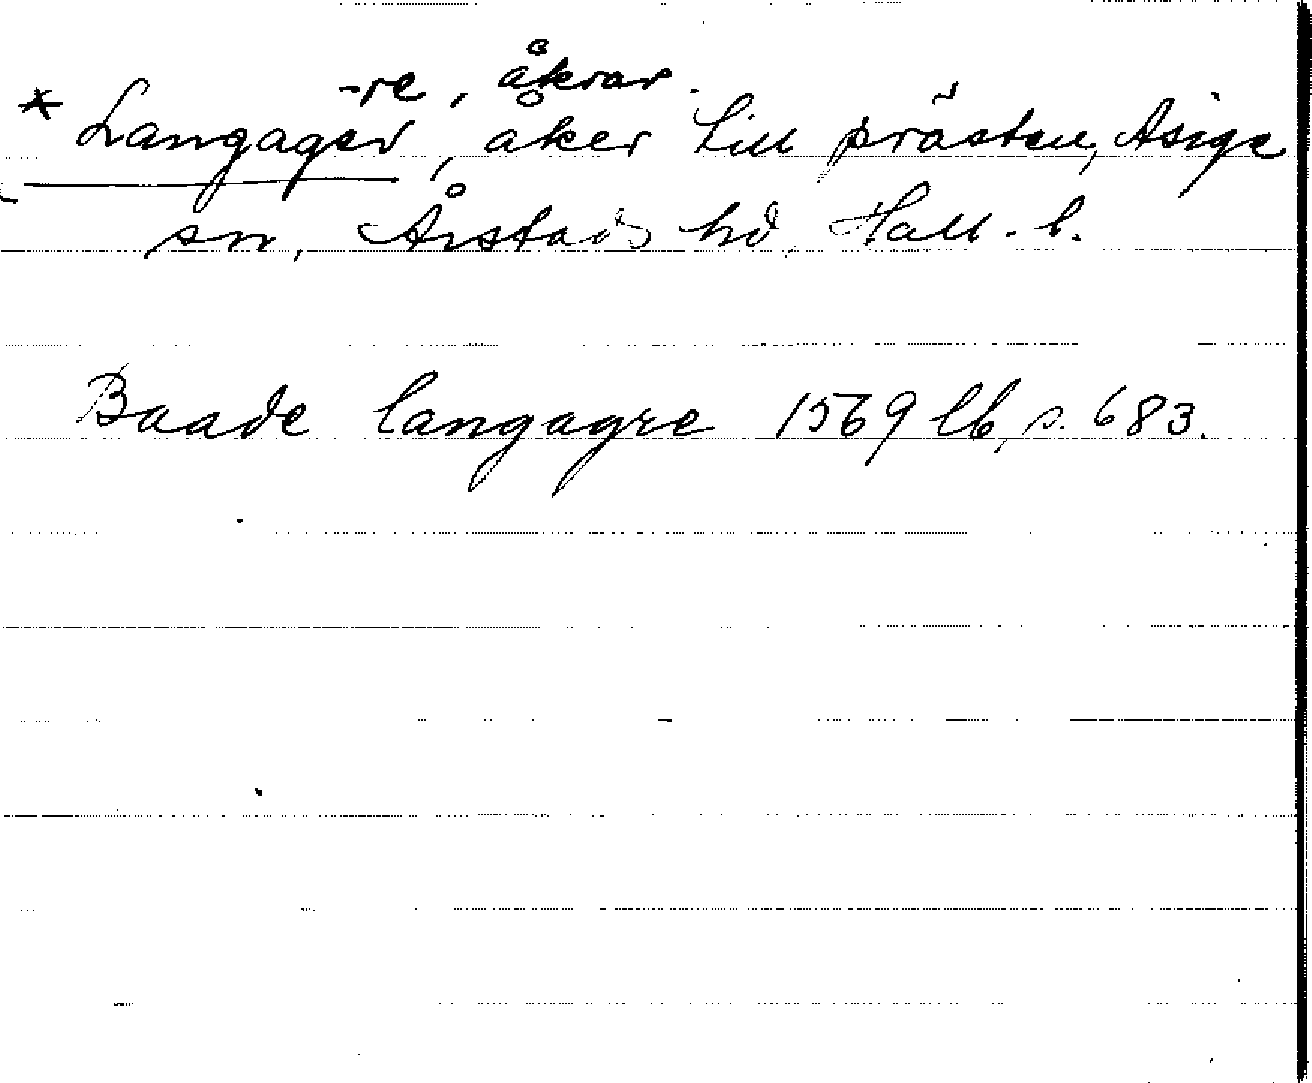 -re, åkrar.
* Langager, åker till prästen, Asige
sn, Årstads hd. Hall. l.
Baade langagre 1569 lb, s. 683.